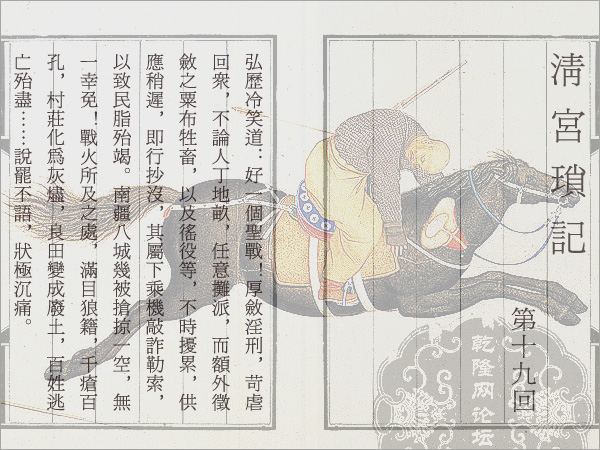 清宮瑣記
第十九回
乾隆网论坛
弘歷冷笑道：好一個聖戰！厚斂淫刑，苛虐
回衆，不論人丁地畝，任意攤派，而額外徵
斂之粟布牲畜，以及徭役等，不時擾累，供
應稍遲，即行抄沒，其屬下乘機敲詐勒索，
以致民脂殆竭。南疆八城幾被搶掠一空，無
一幸免！戰火所及之處，滿目狼籍，千瘡百
孔，村莊化爲灰燼，良田變成廢土，百姓逃
亡殆盡……說罷不語，狀極沉痛。